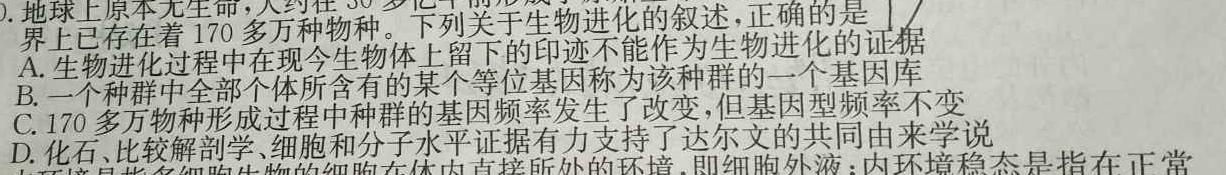 地球上原本无生命,大约在30多亿年前形成了原始生
界上已存在着170多万种物种。下列关于生物进化的叙述,正确的是
A.生物进化过程中在现今生物体上留下的印迹不能作为生物进化的证据
B.一个种群中全部个体所含有的某个等位基因称为该种群的一个基因库
C.170多万物种形成过程中种群的基因频率发生了改变,但基因型频率不变
D.化石、比较解剖学、细胞和分子水平证据有力支持了达尔文的共同由来学说
环境是指多细胞生物的细胞在体内直接所处的环境,即细胞外液;内环境稳态是指在正常